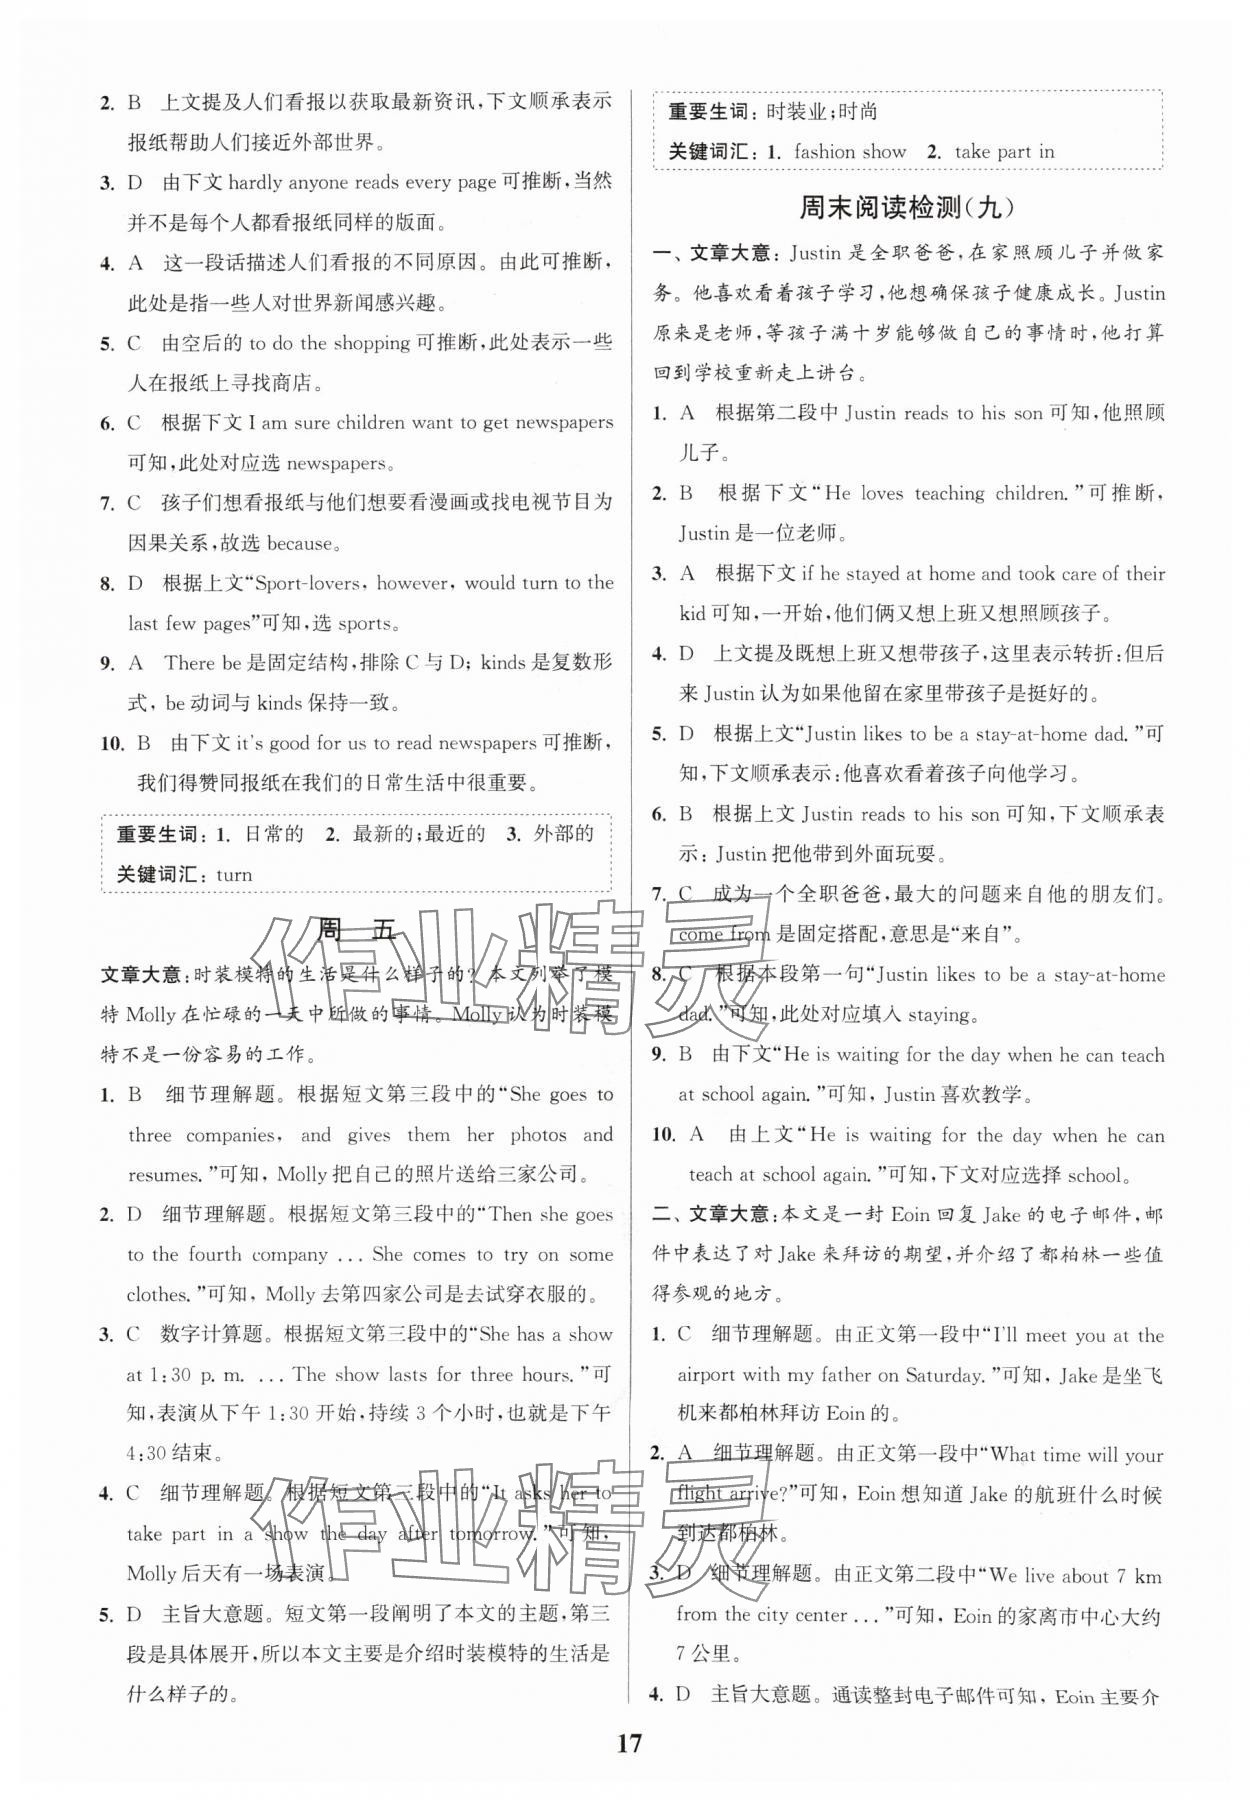 2. B 上文提及人们看报以获取最新资讯,下文顺承表示
报纸帮助人们接近外部世界。
3. D 由下文 hardly anyone reads every page 可推断,当然
并不是每个人都看报纸同样的版面。
4. A 这一段话描述人们看报的不同原因。由此可推断,
此处是指一些人对世界新闻感兴趣。
5. C 由空后的 to do the shopping 可推断,此处表示一些
人在报纸上寻找商店。
6. C 根据下文 I am sure children want to get newspapers
可知,此处对应选 newspapers。
7. C 孩子们想看报纸与他们想要看漫画或找电视节目为
因果关系,故选 because。
8. D 根据上文“Sport-lovers, however, would turn to the
last few pages”可知,选 sports。
9. A There be 是固定结构,排除 C 与 D; kinds 是复数形
式, be 动词与 kinds 保持一致。
10. B 由下文 it's good for us to read newspapers 可推断,
我们得赞同报纸在我们的日常生活中很重要。
重要生词: 1. 日常的 2. 最新的;最近的 3. 外部的
关键词汇: turn
周 五
文章大意:时装模特的生活是什么样子的?本文列举了模
特 Molly 在忙碌的一天中所做的事情。Molly 认为时装模
特不是一份容易的工作。
1. B 细节理解题。根据短文第三段中的“She goes to
three companies, and gives them her photos and
resumes.”可知, Molly 把自己的照片送给三家公司。
2. D 细节理解题。根据短文第三段中的“Then she goes
to the fourth company ... She comes to try on some
clothes.”可知, Molly 去第四家公司是去试穿衣服的。
3. C 数字计算题。根据短文第三段中的“She has a show
at 1:30 p. m. ... The show lasts for three hours.”可
知,表演从下午 1:30 开始,持续 3 个小时,也就是下午
4:30 结束。
4. C 细节理解题。根据短文第三段中的“It asks her to
take part in a show the day after tomorrow.”可知,
Molly 后天有一场表演。
5. D 主旨大意题。短文第一段阐明了本文的主题,第三
段是具体展开,所以本文主要是介绍时装模特的生活是
什么样子的。
重要生词: 时装业;时尚
关键词汇: 1. fashion show 2. take part in
周末阅读检测(九)
一、文章大意: Justin 是全职爸爸,在家照顾儿子并做家
务。他喜欢看着孩子学习,他想确保孩子健康成长。Justin
原来是老师,等孩子满十岁能够做自己的事情时,他打算
回到学校重新走上讲台。
1. A 根据第二段中 Justin reads to his son 可知,他照顾
儿子。
2. B 根据下文“He loves teaching children.”可推断,
Justin 是一位老师。
3. A 根据下文 if he stayed at home and took care of their
kid 可知,一开始,他们俩又想上班又想照顾孩子。
4. D 上文提及既想上班又想带孩子,这里表示转折:但后
来 Justin 认为如果他留在家里带孩子是挺好的。
5. D 根据上文“Justin likes to be a stay-at-home dad.”可
知,下文顺承表示:他喜欢看着孩子向他学习。
6. B 根据上文 Justin reads to his son 可知,下文顺承表
示: Justin 把他带到外面玩耍。
7. C 成为一个全职爸爸,最大的问题来自他的朋友们。
come from 是固定搭配,意思是“来自”。
8. C 根据本段第一句“Justin likes to be a stay-at-home
dad.”可知,此处对应填入 staying。
9. B 由下文“He is waiting for the day when he can teach
at school again.”可知, Justin 喜欢教学。
10. A 由上文“He is waiting for the day when he can
teach at school again.”可知,下文对应选择 school。
二、文章大意:本文是一封 Eoin 回复 Jake 的电子邮件,邮
件中表达了对 Jake 来拜访的期望,并介绍了都柏林一些值
得参观的地方。
1. C 细节理解题。由正文第一段中“I'll meet you at the
airport with my father on Saturday.”可知, Jake 是坐飞
机来都柏林拜访 Eoin 的。
2. A 细节理解题。由正文第一段中“What time will your
flight arrive?”可知, Eoin 想知道 Jake 的航班什么时候
到达都柏林。
3. D 细节理解题。由正文第二段中“We live about 7 km
from the city center ...”可知, Eoin 的家离市中心大约
7 公里。
4. D 主旨大意题。通读整封电子邮件可知, Eoin 主要介
17
作业精灵
作业精灵